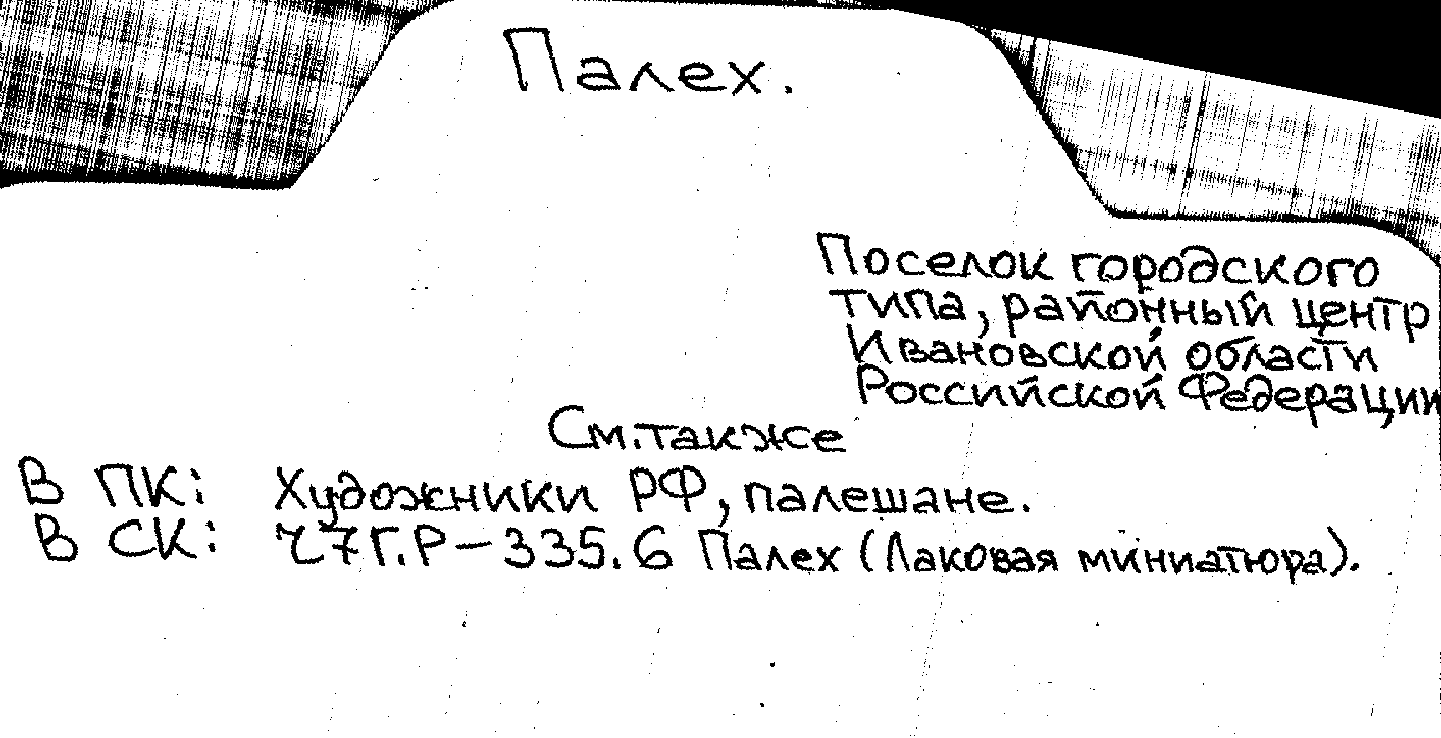 Палех.
Поселок городского
типа, районный центр
Ивановской области
Российской Федерации
См. также
В ПК: Художники РФ, палешане.
В СК: Ч7Г.Р-335.6 Палех (Лаковая миниатюра).